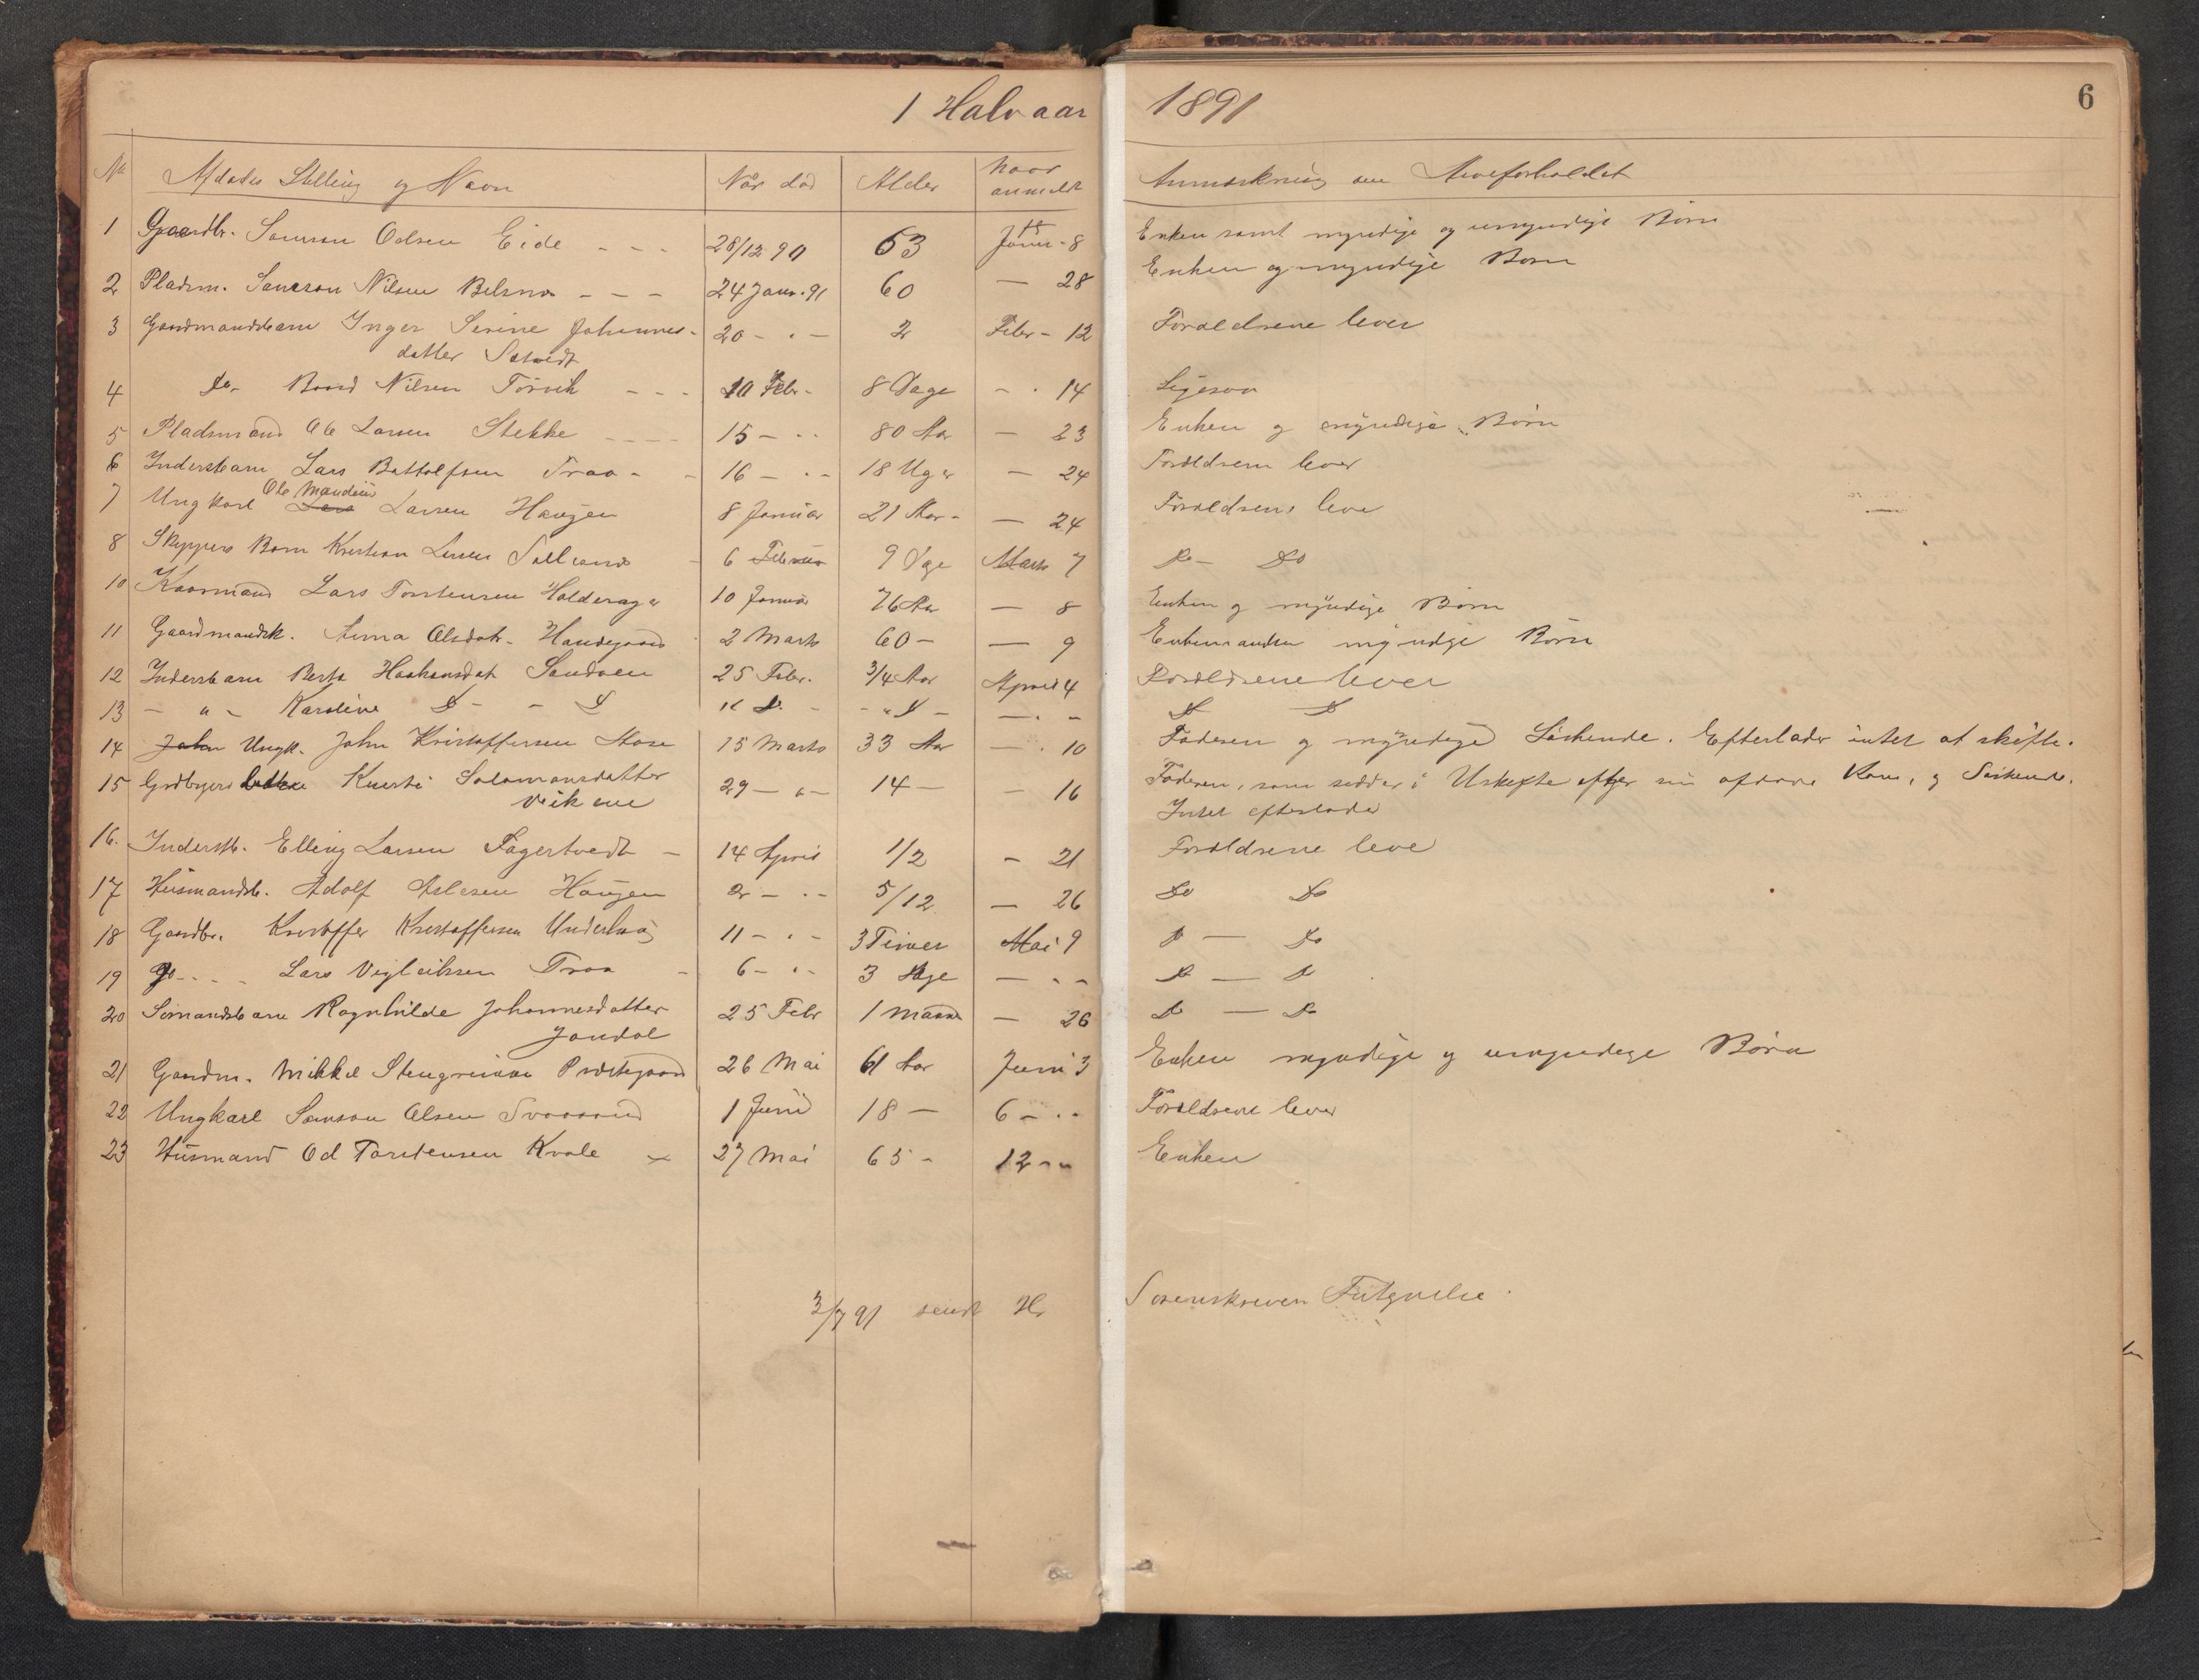 1 Halvaar 1891
6
No Afdødes Stilling og Navn Når død Alder naar anmeldt Anmærkning om Arveforholdet
1 Gaardbr. Samson Odsen Eide - - - 28/12 90 63 Januar - 8 Enken samt myndige og umyndige Børn
2 Pladsm. Samson Nilsen - - - 24 Janr. 91 60 — 28 Enken og myndige Børn
3 Gaardmandsbarn Inger Serine Johannes- 20 - " - 2 Febr - 12 Forældrene lever
datter Sætvedt
4 Do- Baard Nilsen Torvik - - - 10 Febr - 8 Dage - " 14 Ligesaa
5 Pladsmand Ole Larsen Stekke - - - - 15 - " - 80 Aar — 23 Enken og myndige Børn
6 Inderstbarn Lars Battolfsen Traa - - 16 — - - 18 Uger — 24 Forældrene lever
Ole Mandius
7 Ungkarl Lars Larsen Haugen 8 Januar 21 Aar - — 24 Forældrene leve
8 Skippers Barn Kristian Larsen - 6 Februar 9 Dge Marts 7 Do - Do
10 Kaarmand Lars Torstensen Halderager 10 Januar 76 Aar — 8 Enken og myndige Børn
11 Gaardmandsk. Anna Olsdatr. Handegaard 2 Marts 60 - — 9 Enkemanden myndige Børn
12 Inderstbarn Berta Haakonsdat Sandven 25 Febr. 3/4 Aar April 4 Forældrene lever
13 - " - Karoline D - - D " D. - - " D - — . - D D
14 John Ungk. John Kristoffersen Stase 15 Marts 33 Aar — . 10 Faderen og myndige Søskende. Efterlader intet at skifte.
15 Grdbrgers Knerti Salamonsdatter 29 — " — 14 — — 16 Faderen, som sidder i Uskifte efter sin afdøde Kone, og Søskende.
Vikene Intet efterlader
16. Inderstb. Elling Larsen Fagertvedt - 14 April 1/2 - 21 Forældrene leve
17 Husmandsb. Adolf Aslesen Haugen 2 — " - 5/12 — 26 Do Do
18 Gaardbr. Kristoffer Kristoffersen Underhaug 11 - " - 3 Timer Mai 9 D — Do
19 Do - - - - Lars Vigleiksen Traa - 6 - " - 3 Dge — " - D — D
20 Sømandsbarn Ragnhilde Johannesdatter 25 Febr 1 Maaned — 26 D — D
Jondal
21 Gaardm. Mikkel Stengrimsen Prestegaard 26 Mai 61 Aar Juni 3 Enken myndige og umyndige Børn
22 Ungkarl Samson Olsen Svaasand 1 Juni 18 — 6 - " Forældrene lever
23 Husmand Od Torstensen Kvale 27 Mai 65 - 12 - " Enken
3/7 91 sendt Hr Sorenskriver